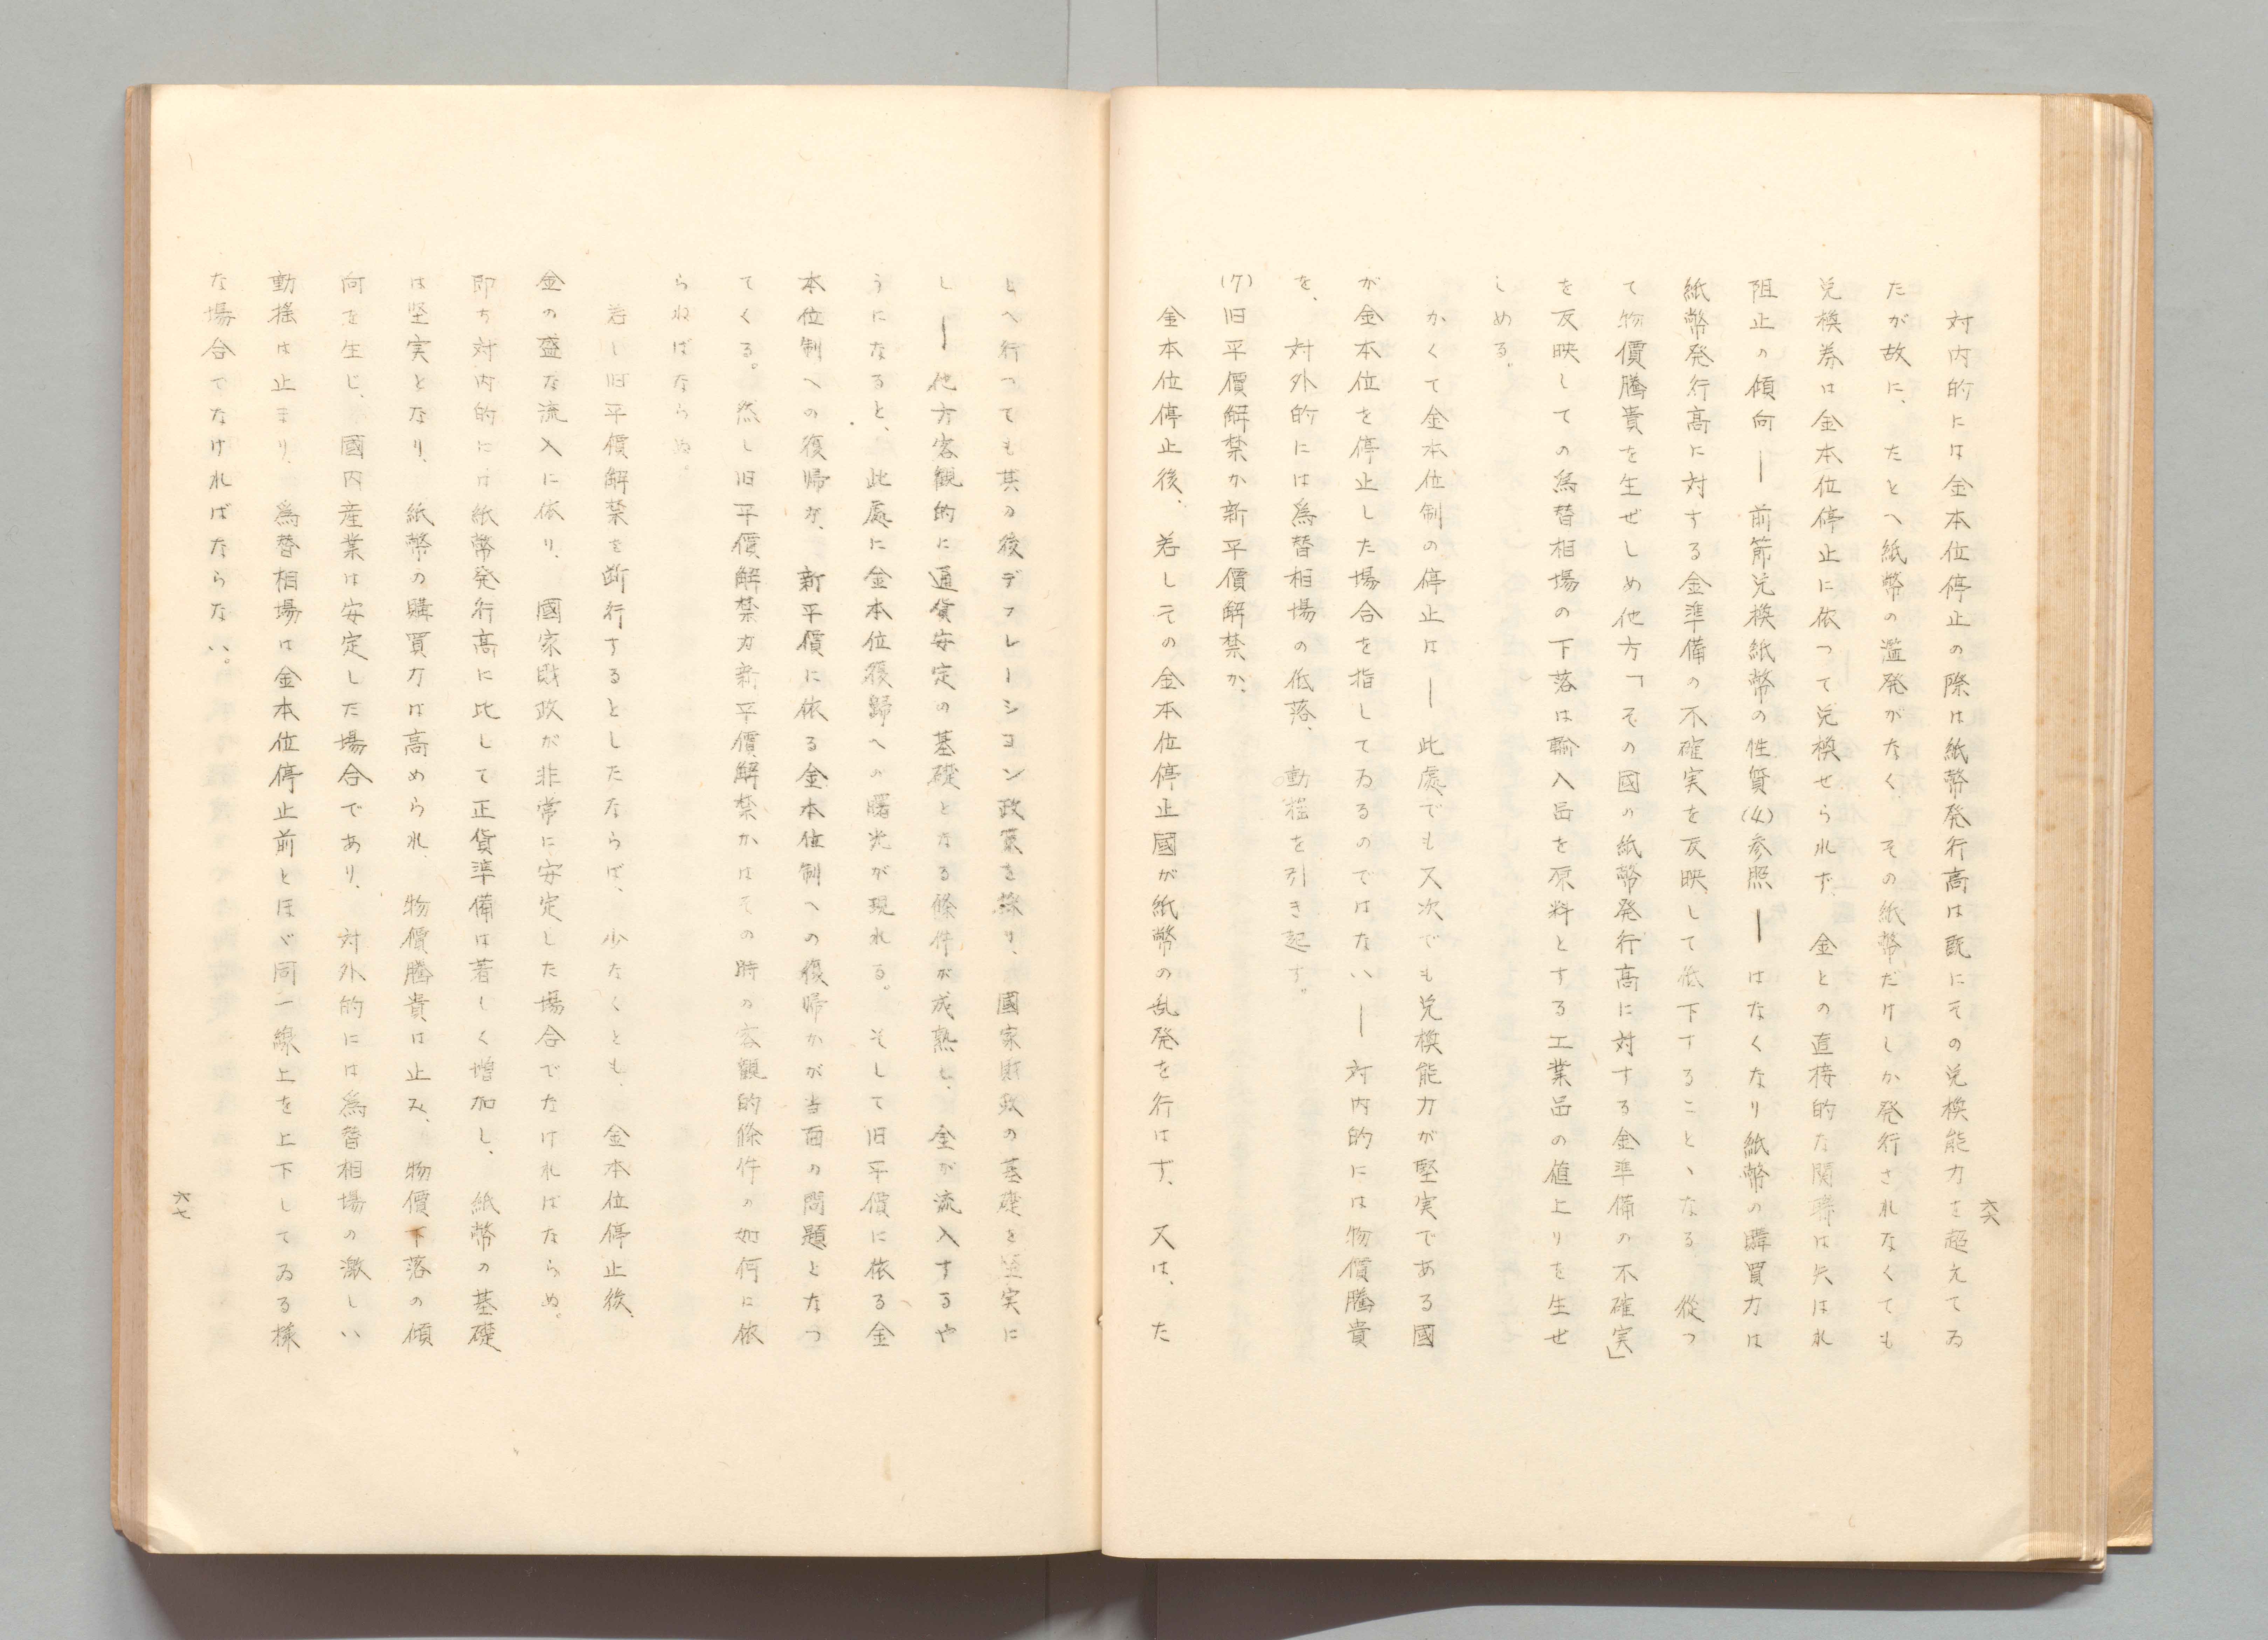 対内的には金本位停止の際は紙幣発行高は既にその兌換能力を超えてゐ
たが故に、たとへ紙幣の濫発がなく、その紙幣だけしか発行されなくても
兌換券は金本位停止に依つて兌換せられず、金との直接的な関聯は失はれ
阻止の傾向―前節兌換紙幣の性質(4)参照―はなくなり紙幣の購買力は
紙幣発行高に対する金準備の不確実を反映して低下することゝなる、從つ
て物價騰貴を生ぜしめ他方「その國の紙幣発行高に対する金準備の不確実」
を反映しての為替相場の下落は輸入品を原料とする工業品の値上りを生せ
しめる。
かくて金本位制の停止は―此處でも又次でも兌換能力が堅実である國
が金本位を停止した場合を指してゐるのではない―対内的には物價騰貴
を、対外的には為替相場の低落、動揺を引き起す。
(7)旧平價解禁か新平價解禁か、
金本位停止後、若しその金本位停止國が紙幣の乱発を行はず、又は、た
とへ行つても其の後デフレーシヨン政策を採り、國家財政の基礎を堅実に
し―他方客観的に通貨安定の基礎となる條件が成熟し、金が流入するや
うになると、此處に金本位復歸への曙光が現れる。そして旧平價に依る金
本位制への復帰か、新平價に依る金本位制への復帰かが当面の問題となつ
てくる。然し旧平價解禁か新平價解禁かはその時の客観的條件の如何に依
らねばならぬ。
若し旧平價解禁を断行するとしたならば、少なくとも、金本位停止後、
金の盛な流入に依り、國家財政が非常に安定した場合でなければならぬ。
即ち対内的には紙幣発行高に比して正貨準備は著しく増加し、紙幣の基礎
は堅実となり、紙幣の購買力は高められ、物價騰貴は止み、物價下落の傾
向を生じ、國内産業は安定した場合であり、対外的には為替相場の激しい
動揺は止まり、為替相場は金本位停止前とほゞ同一線上を上下してゐる様
な場合でなければならない。
六六
六七